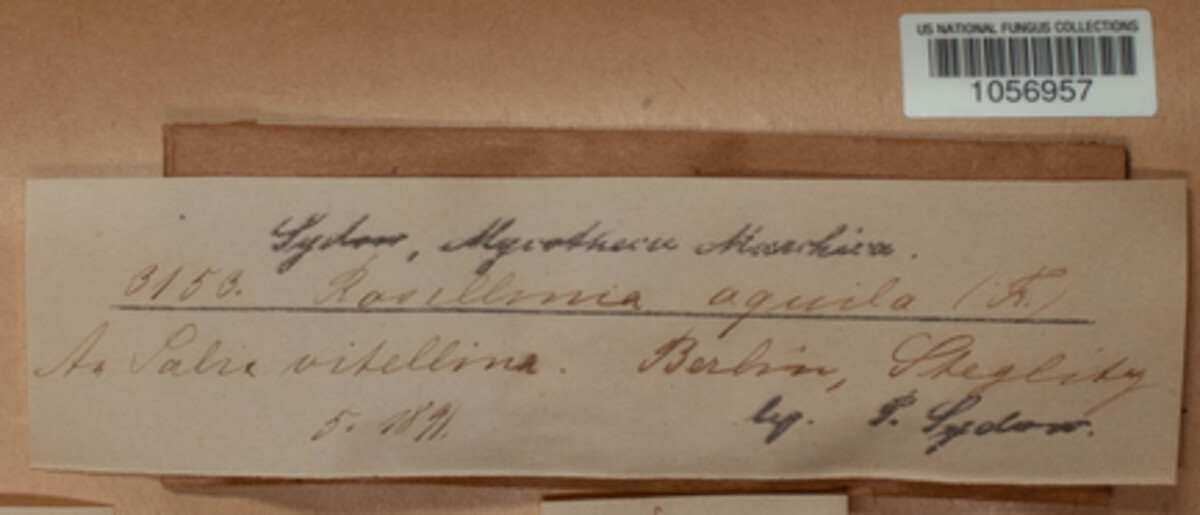 US NATIONAL FUNGUS COLLECTIONS
1056957
Sydow, Mycotheca Marchica.
3153. Rosellinia aquila (Fr.)
An Salix vitellina. Berlin, Steglitz
5. 1891. leg. P. Sydow.